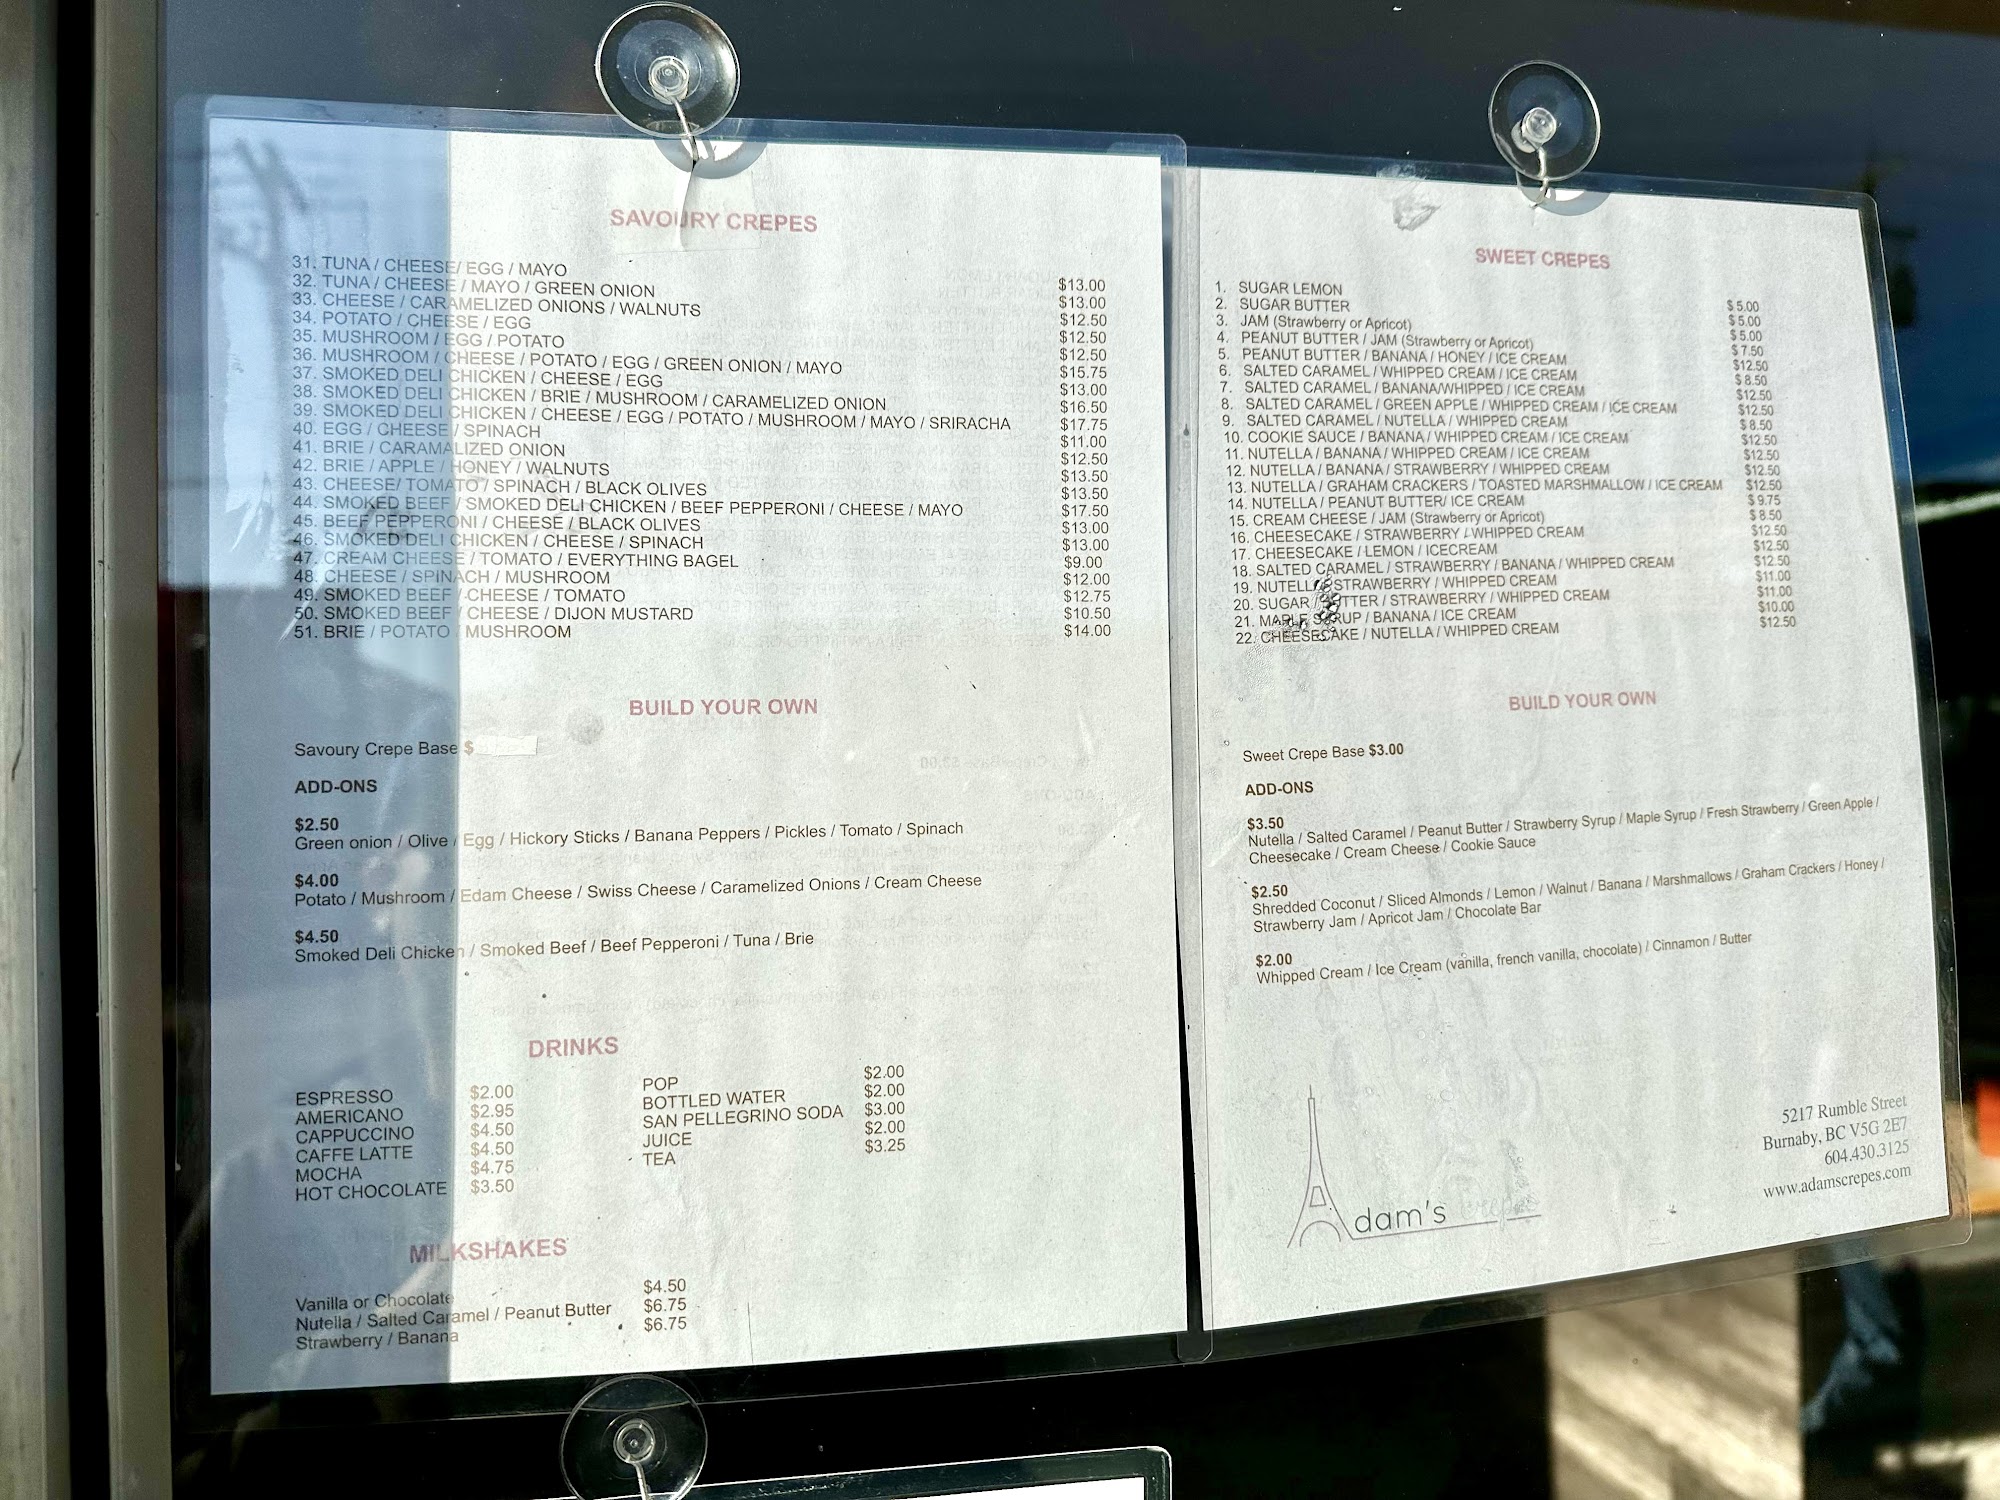 SAVOURY CREPES
31. TUNA / CHEESE/ EGG / MAYO $13.00
32. TUNA / CHEESE / MAYO / GREEN ONION $13.00
33. CHEESE / CARAMELIZED ONIONS / WALNUTS $12.50
34. POTATO / CHEESE / EGG $12.50
35. MUSHROOM / EGG / POTATO $12.50
36. MUSHROOM / CHEESE / POTATO / EGG / GREEN ONION / MAYO $15.75
37. SMOKED DELI CHICKEN / CHEESE / EGG $13.00
38. SMOKED DELI CHICKEN / BRIE / MUSHROOM / CARAMELIZED ONION $16.50
39. SMOKED DELI CHICKEN / CHEESE / EGG / POTATO / MUSHROOM / MAYO / SRIRACHA $17.75
40. EGG / CHEESE / SPINACH $11.00
41. BRIE / CARAMALIZED ONION $12.50
42. BRIE / APPLE / HONEY / WALNUTS $13.50
43. CHEESE/ TOMATO / SPINACH / BLACK OLIVES $13.50
44. SMOKED BEEF / SMOKED DELI CHICKEN / BEEF PEPPERONI / CHEESE / MAYO $17.50
45. BEEF PEPPERONI / CHEESE / BLACK OLIVES $13.00
46. SMOKED DELI CHICKEN / CHEESE / SPINACH $13.00
47. CREAM CHEESE / TOMATO / EVERYTHING BAGEL $9.00
48. CHEESE / SPINACH / MUSHROOM $12.00
49. SMOKED BEEF / CHEESE / TOMATO $12.75
50. SMOKED BEEF / CHEESE / DIJON MUSTARD $10.50
51. BRIE / POTATO / MUSHROOM $14.00
BUILD YOUR OWN
Savoury Crepe Base $
ADD-ONS
$2.50
Green onion / Olive / Egg / Hickory Sticks / Banana Peppers / Pickles / Tomato / Spinach
$4.00
Potato / Mushroom / Edam Cheese / Swiss Cheese / Caramelized Onions / Cream Cheese
$4.50
Smoked Deli Chicken / Smoked Beef / Beef Pepperoni / Tuna / Brie
DRINKS
ESPRESSO $2.00
AMERICANO $2.95
CAPPUCCINO $4.50
CAFFE LATTE $4.50
MOCHA $4.75
HOT CHOCOLATE $3.50
POP $2.00
BOTTLED WATER $2.00
SAN PELLEGRINO SODA $3.00
JUICE $2.00
TEA $3.25
MILKSHAKES
Vanilla or Chocolate $4.50
Nutella / Salted Caramel / Peanut Butter $6.75
Strawberry / Banana $6.75
SWEET CREPES
1. SUGAR LEMON $ 5.00
2. SUGAR BUTTER $ 5.00
3. JAM (Strawberry or Apricot) $ 5.00
4. PEANUT BUTTER / JAM (Strawberry or Apricot) $ 7.50
5. PEANUT BUTTER / BANANA / HONEY / ICE CREAM $12.50
6. SALTED CARAMEL / WHIPPED CREAM / ICE CREAM $ 8.50
7. SALTED CARAMEL / BANANA/WHIPPED / ICE CREAM $12.50
8. SALTED CARAMEL / GREEN APPLE / WHIPPED CREAM / ICE CREAM $12.50
9. SALTED CARAMEL / NUTELLA / WHIPPED CREAM $ 8.50
10. COOKIE SAUCE / BANANA / WHIPPED CREAM / ICE CREAM $12.50
11. NUTELLA / BANANA / WHIPPED CREAM / ICE CREAM $12.50
12. NUTELLA / BANANA / STRAWBERRY / WHIPPED CREAM $12.50
13. NUTELLA / GRAHAM CRACKERS / TOASTED MARSHMALLOW / ICE CREAM $12.50
14. NUTELLA / PEANUT BUTTER/ ICE CREAM $ 9.75
15. CREAM CHEESE / JAM (Strawberry or Apricot) $ 8.50
16. CHEESECAKE / STRAWBERRY / WHIPPED CREAM $12.50
17. CHEESECAKE / LEMON / ICECREAM $12.50
18. SALTED CARAMEL / STRAWBERRY / BANANA / WHIPPED CREAM $12.50
19. NUTELLA / STRAWBERRY / WHIPPED CREAM $11.00
20. SUGAR BUTTER / STRAWBERRY / WHIPPED CREAM $11.00
21. MAPLE SYRUP / BANANA / ICE CREAM $10.00
22. CHEESECAKE / NUTELLA / WHIPPED CREAM $12.50
BUILD YOUR OWN
Sweet Crepe Base $3.00
ADD-ONS
$3.50
Nutella / Salted Caramel / Peanut Butter / Strawberry Syrup / Maple Syrup / Fresh Strawberry / Green Apple /
Cheesecake / Cream Cheese / Cookie Sauce
$2.50
Shredded Coconut / Sliced Almonds / Lemon / Walnut / Banana / Marshmallows / Graham Crackers / Honey /
Strawberry Jam / Apricot Jam / Chocolate Bar
$2.00
Whipped Cream / Ice Cream (vanilla, french vanilla, chocolate) / Cinnamon / Butter
5217 Rumble Street
Burnaby, BC V5G 2E7
604.430.3125
www.adamscrepes.com
dam's crepes